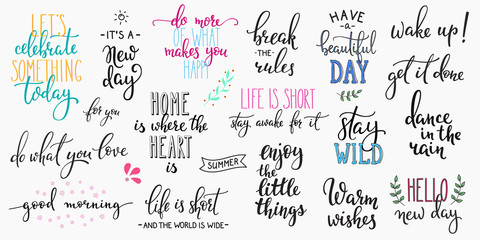 LET'S
celebrate
SOMETHING
today
-IT'S A-
New
day
do more
OF WHAT
makes you
HAPPY
break
-the-
rules
HAVE
a
beautiful
DAY
wake up!
get it done
for you
HOME
is where the
HEART
is
LIFE IS SHORT
stay awake for it
stay
WILD
dance
in the
rain
do what you love
SUMMER
enjoy
the
little
things
good morning
life is short
-AND THE WORLD IS WIDE-
Warm
wishes
HELLO
new day